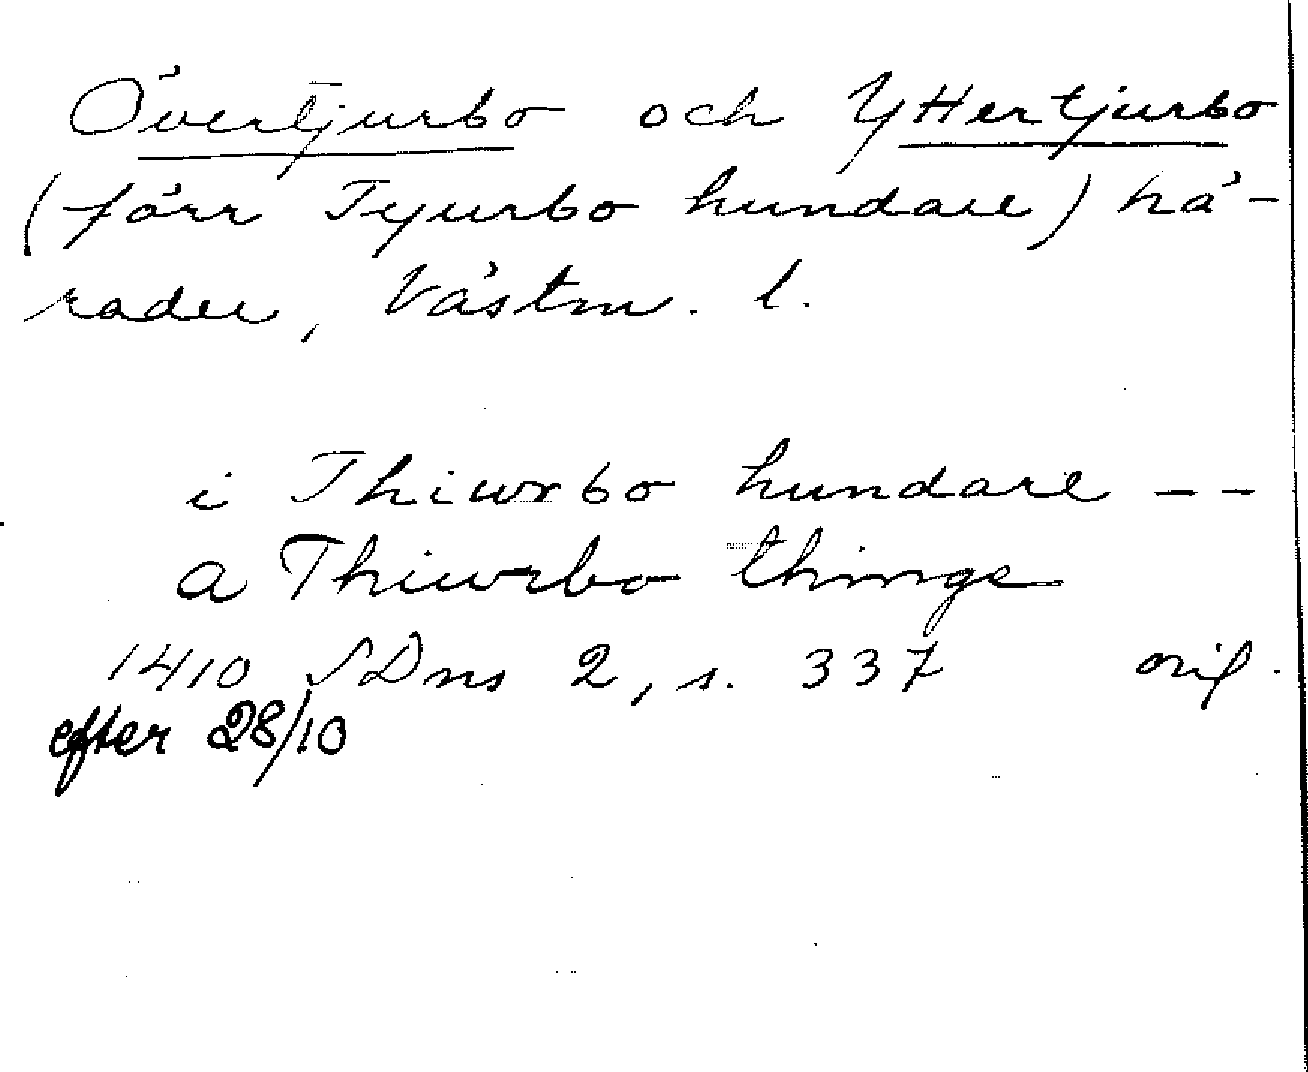 Övertjurbo och Yttertjurbo
(förr Tyurbo hundare) hä-
rader, Västm. l.
i Thiwrbo hundare --
a Thiwrbo thinge
1410 SDns 2, s. 337 orig.
efter 28/10